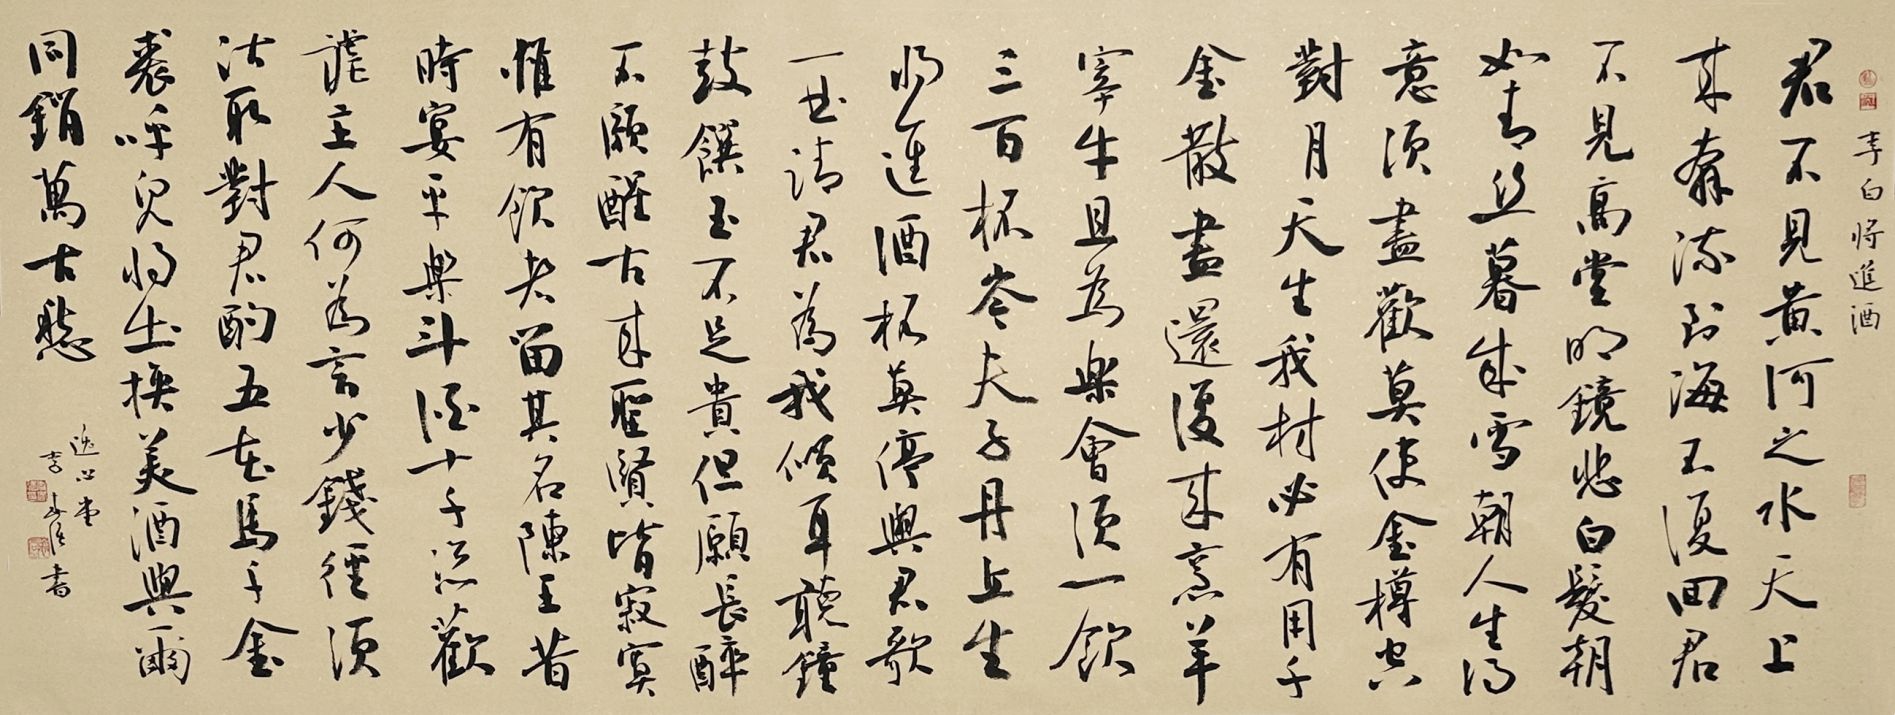 李白将進酒
君不見黄河之水天上
来奔流到海不復回君
不見高堂明鏡悲白髮朝
如青丝暮成雪朝人生得
意須盡歡莫使金樽空
對月天生我材必有用千
金散盡還復来烹羊
宰牛且為樂會須一飲
三百杯岑夫子丹丘生
将進酒杯莫停與君歌
一曲請君為我傾耳聽鐘
鼓饌玉不足貴但願長醉
不願醒古来聖賢皆寂寞
惟有飲者留其名陳王昔
時宴平樂斗酒十千恣歡
謔主人何為言少錢徑須
沽取對君酌五花馬千金
裘呼兒将出換美酒與爾
同銷萬古愁
逸心堂
李書